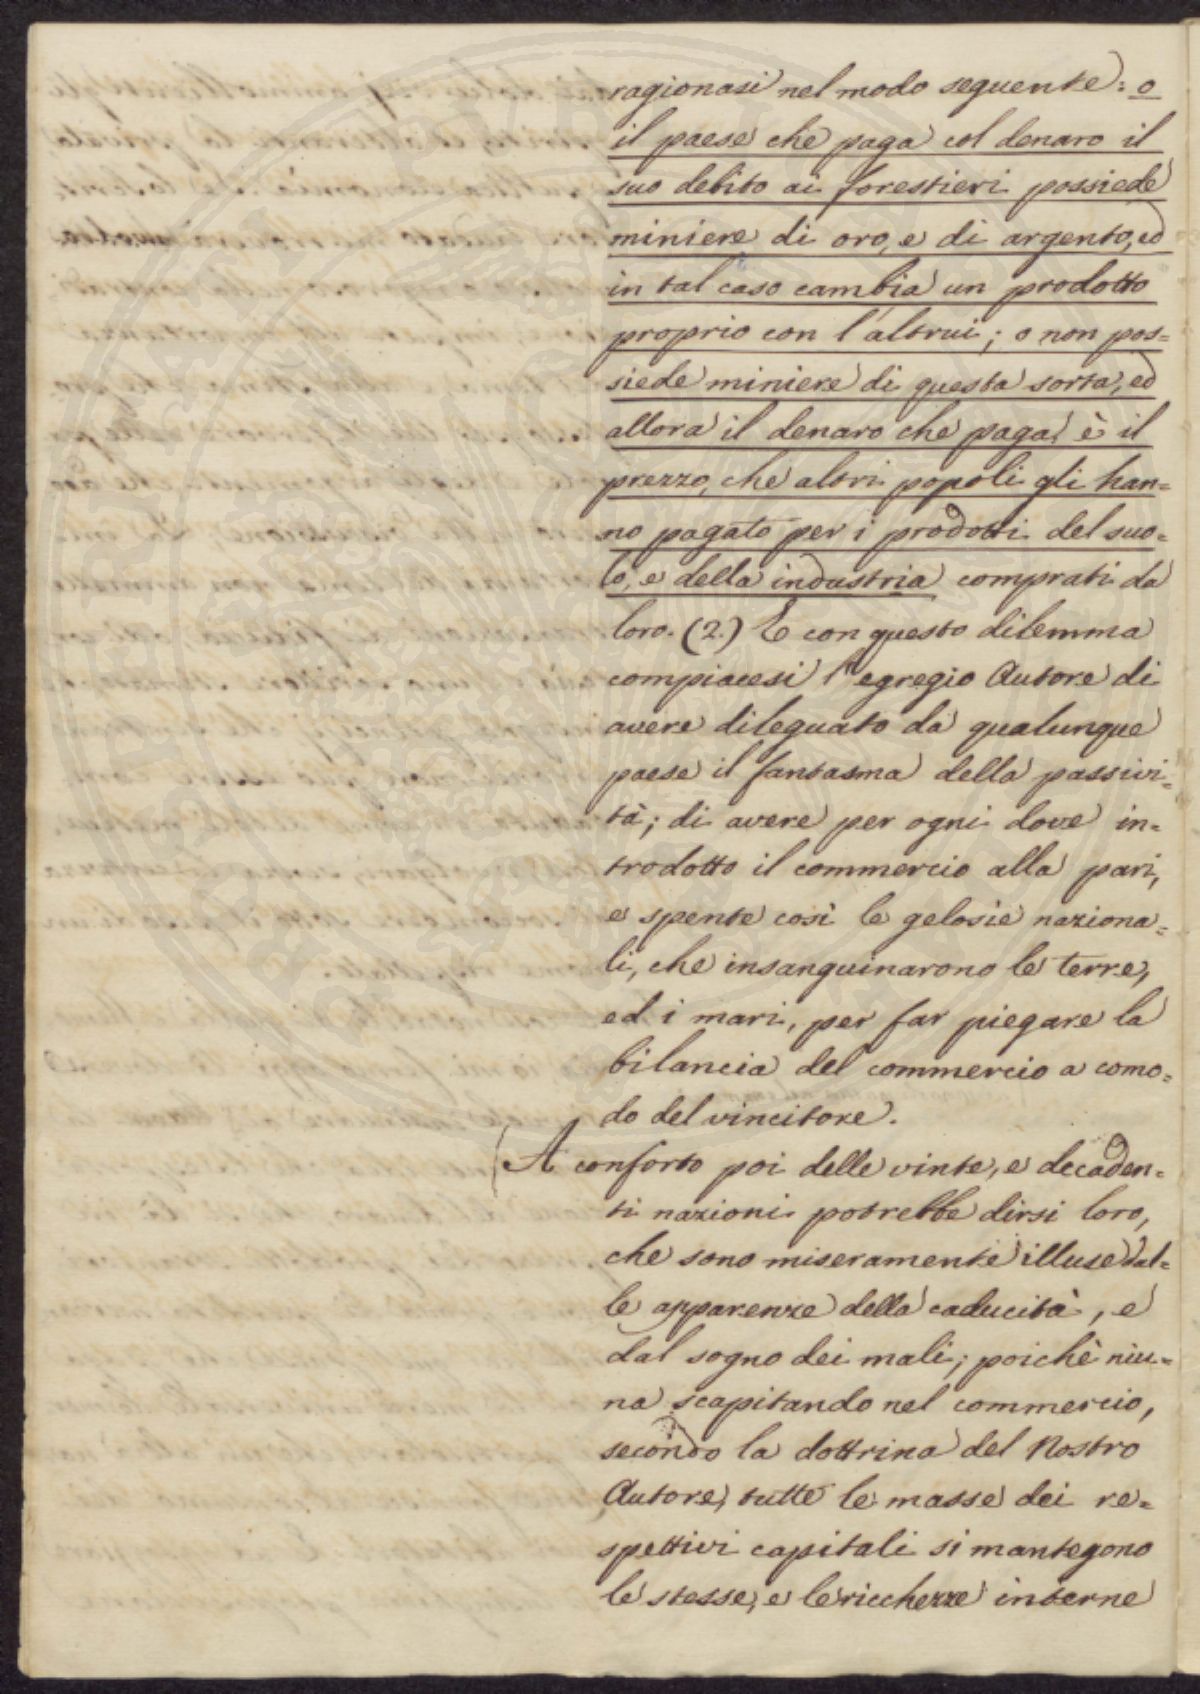 ragionasi nel modo seguente: o
il paese che paga col denaro il
suo debito ai forestieri possiede
miniere di oro, e di argento, ed
in tal caso cambia un prodotto
proprio con l'altrui; o non pos=
siede miniere di questa sorta, ed
allora il denaro che paga, è il
prezzo, che altri popoli gli han=
no pagato per i prodotti del suo=
lo, e della industria comprati da
loro. (2.) E con questo dilemma
compiacesi l'egregio Autore di
avere dileguato da qualunque
paese il fantasma della passivi=
tà; di avere per ogni dove in=
trodotto il commercio alla pari,
e spente così le gelosie naziona=
li, che insanguinarono le terre,
ed i mari, per far piegare la
bilancia del commercio a como=
do del vincitore.
(A conforto poi delle vinte, e decaden=
ti nazioni potrebbe dirsi loro,
che sono miseramente illuse dal=
le apparenze della caducità, e
dal sogno dei mali; poichè niu=
na scapitando nel commercio,
secondo la dottrina del Nostro
Autore, tutte le masse dei re=
spettivi capitali si mantegono
le stesse, e le ricchezze interne